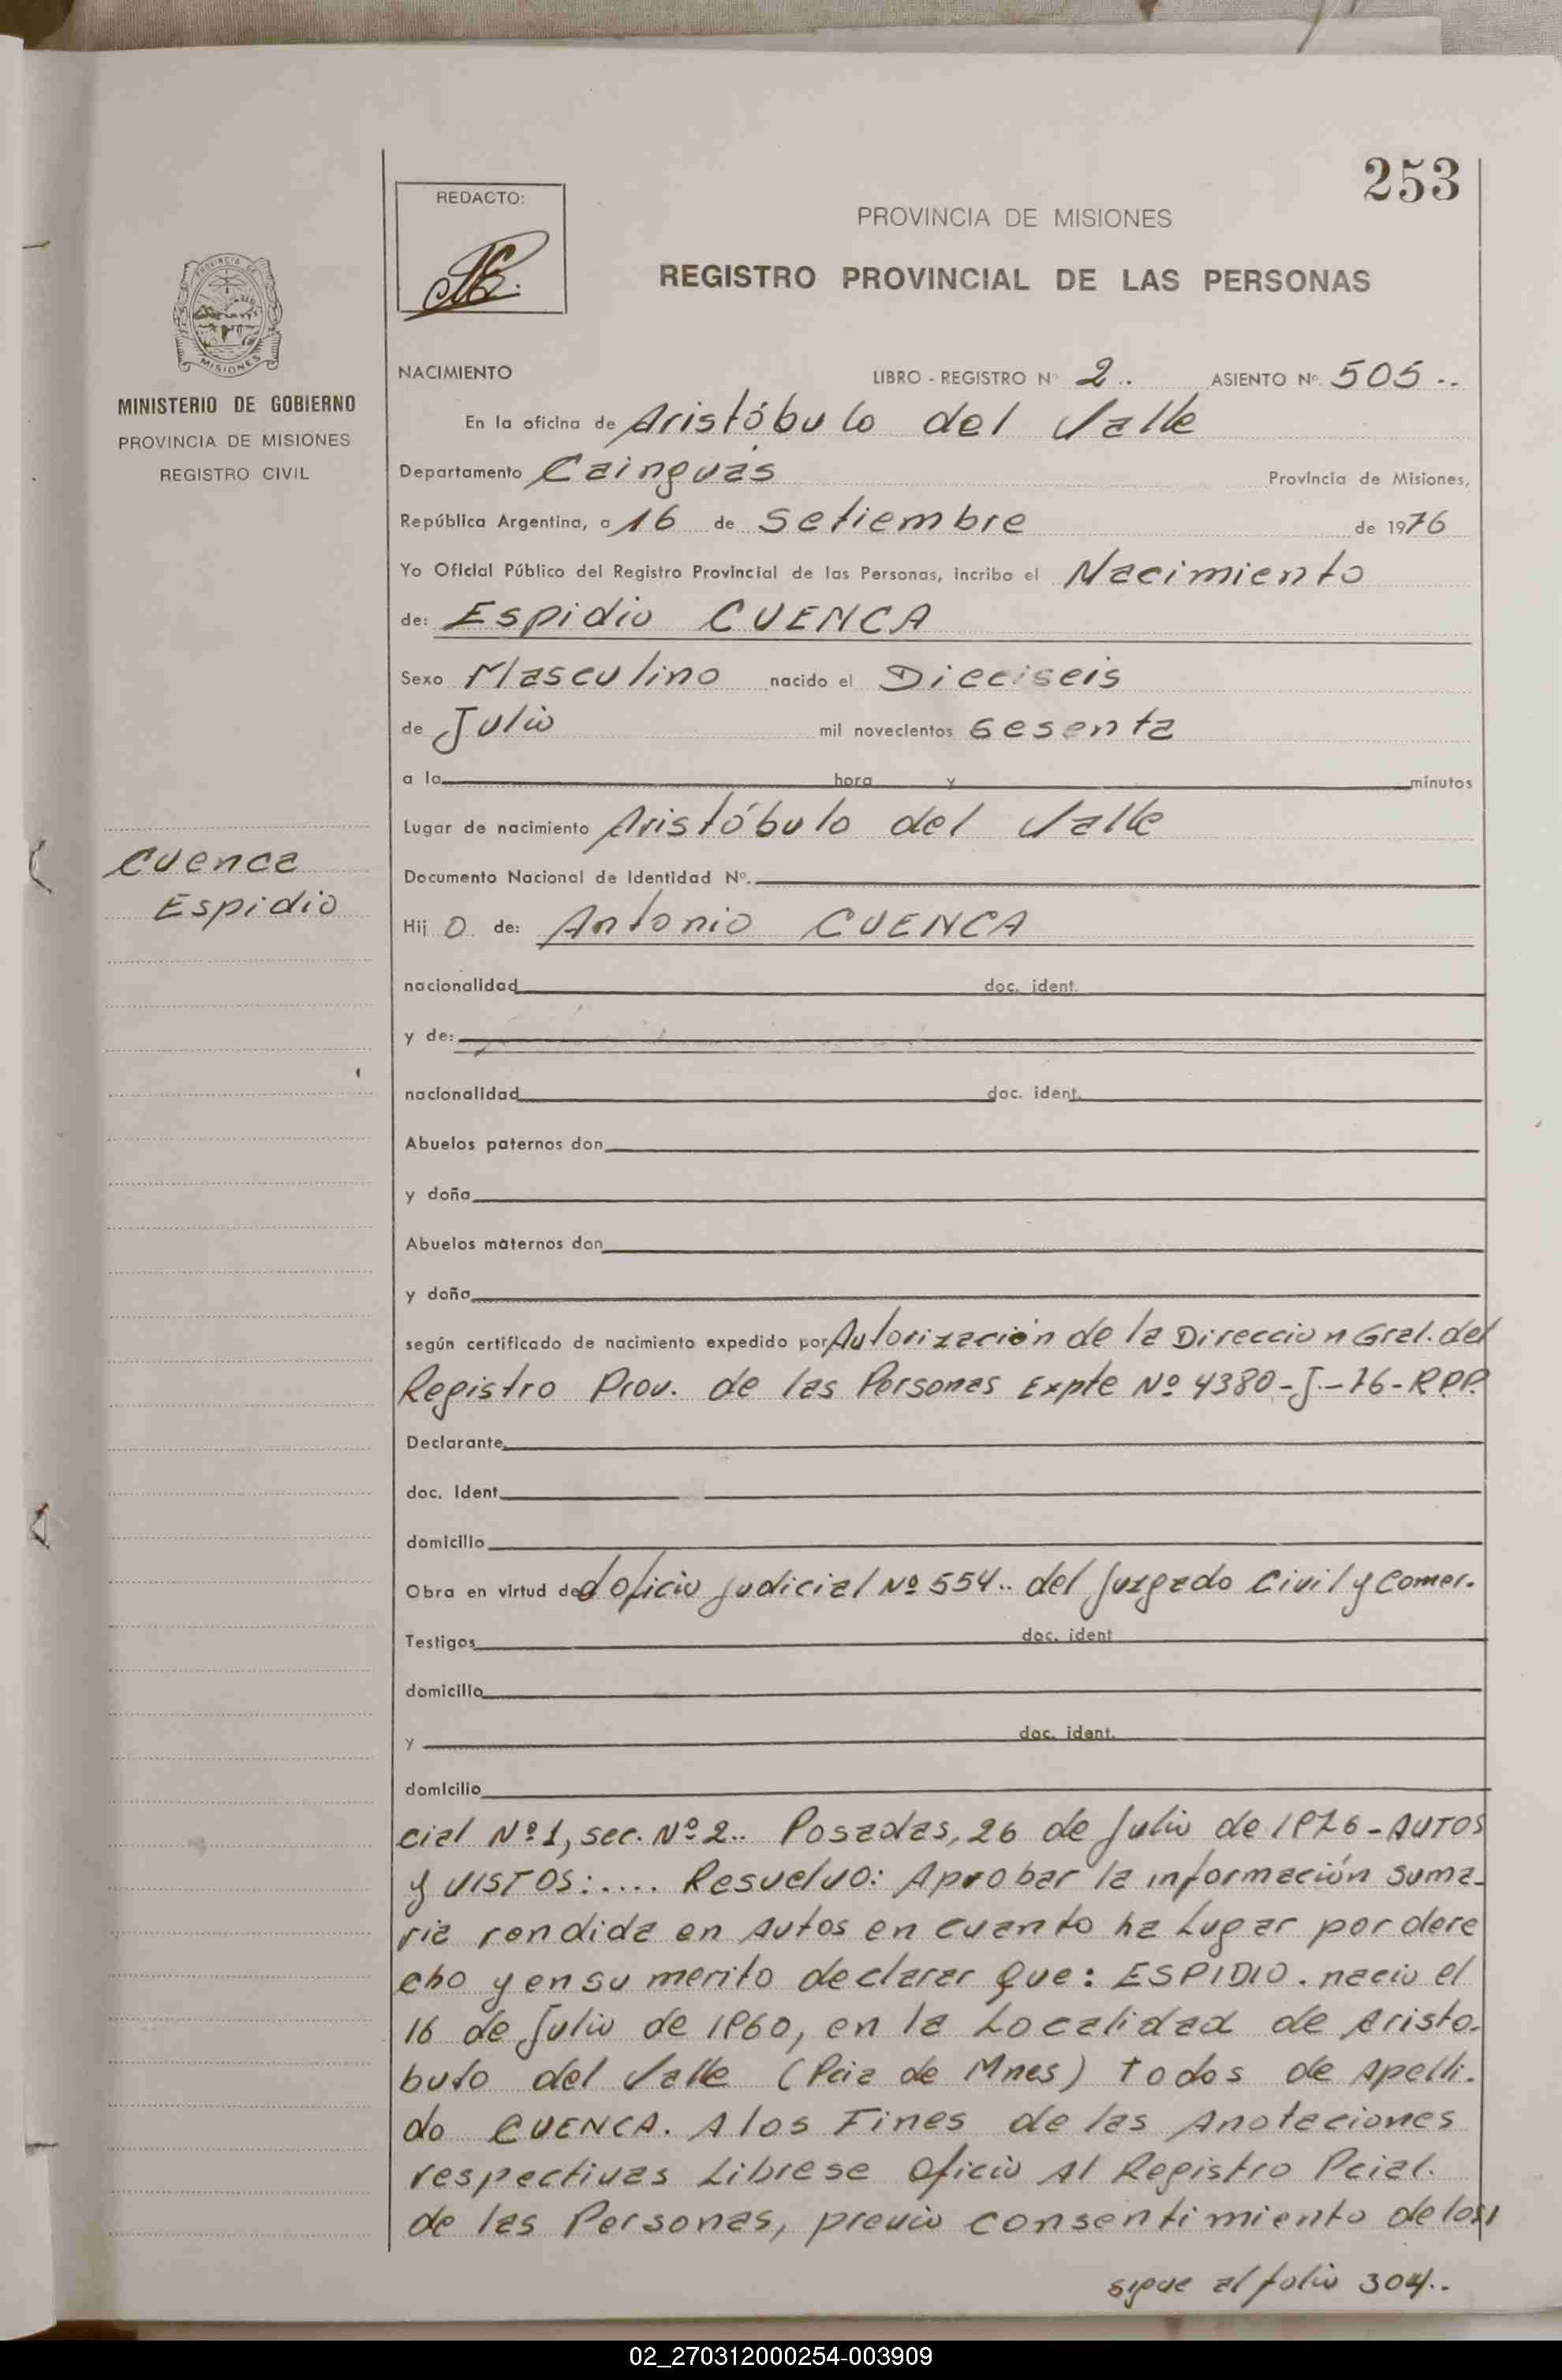 253
REDACTO:
PROVINCIA DE MISIONES
REGISTRO PROVINCIAL DE LAS PERSONAS
PROVINCIA DE
MISIONES
MINISTERIO DE GOBIERNO
PROVINCIA DE MISIONES
REGISTRO CIVIL
NACIMIENTO LIBRO - REGISTRO Nº 2. ASIENTO Nº 505..
En la oficina de Aristóbulo del Valle
Departamento Cainguás Provincia de Misiones,
República Argentina, a 16 de Setiembre de 1976
Yo Oficial Público del Registro Provincial de las Personas, incribo el Nacimiento
de: Espidio CUENCA
Sexo Masculino nacido el Dieciseis
de Julio mil novecientos sesenta
a la hora y minutos
Lugar de nacimiento Aristóbulo del Valle
Cuenca
Espidio
Documento Nacional de Identidad Nº.
Hij o de: Antonio CUENCA
nacionalidad doc. ident.
y de:
nacionalidad doc. ident.
Abuelos paternos don
y doña
Abuelos maternos don
y doña
según certificado de nacimiento expedido por Autorización de la Direccion Gral. del
Registro Prov. de las Personas Expte Nº 4380-J.-76-R.P.P.
Declarante
doc. Ident.
domicilio
Obra en virtud de del oficio judicial Nº 554.. del Juzgado Civil y Comer.
Testigos doc. ident
domicilio
y doc. ident.
domicilio
cial Nº 1, sec. Nº 2.. Posadas, 26 de Julio de 1976 - AUTOS
y VISTOS:.... Resuelvo: Aprobar la información suma-
ria rendida en autos en cuanto ha Lugar por dere
cho y en su merito declarar Que: ESPIDIO. nacio el
16 de Julio de 1960, en la Localidad de Aristo.
bulo del Valle (Pcia de Mnes) todos de apelli.
do CUENCA. A los Fines de las Anotaciones
respectivas Librese Oficio Al Registro Pcial.
de las Personas, previo consentimiento de los
sigue al folio 304..
02_270312000254-003909